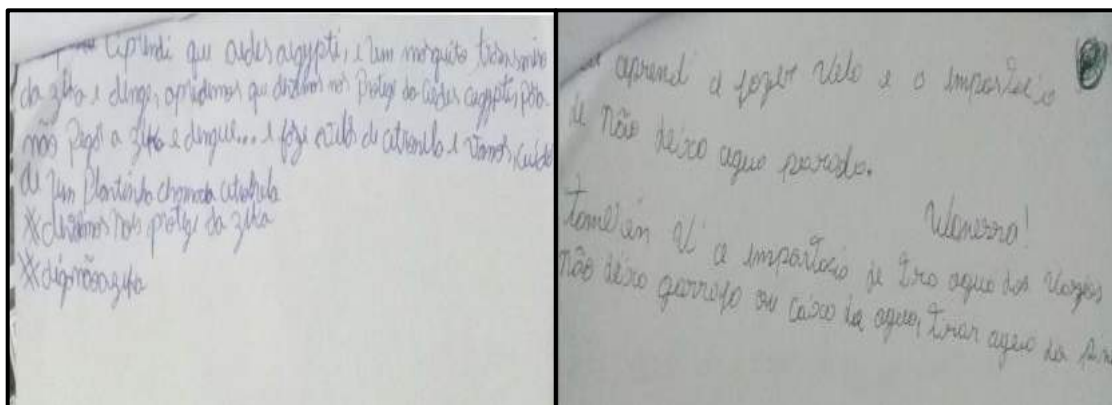 Aprendi que aedes aegypti, e um mosquito transmiso
da zika e dengi, apredemos que devemos nos protege do aedes aegypti, para
não pegar a zika e dengue... e faze vela de citronela e vamos cuida
de um plantinha chamada citronela
*devemos nos protege da zika
*diga não a zika
aprend a fazer vela e a importacia
de não deixa agua parada.
Wanessa!
tameén vi a importacia de tira agua dos vazos
não deixa garrafa ou caixa da agua, tirar agua da